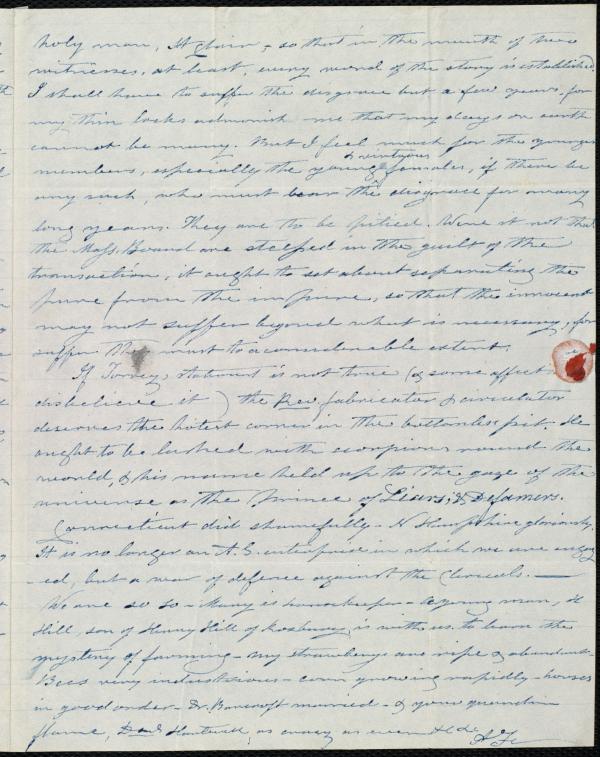 holy man, St Clair, - so that in the mouth of three
witnesses, at least, every word of the story is established.
I shall have to suffer the disgrace but a few years, for
my thin locks admonish me that my days on earth
cannot be many. But I feel much for the younger
& virtuous
members, especially the young females, if there be
any such, who must bear the disgrace for many
long years. They are to be pitied. Were it not that
the Mass. Board are steeped in the guilt of the
transaction, it ought to set about separating the
pure from the impure, so that the innocent
may not suffer beyond what is necessary, for
suffer they must to a considerable extent.
If Torrey's statement is not true (as some affect to
disbelieve it) the Rev. fabricator & circulator
deserves the hotest corner in the bottomless pit. He
ought to be lashed with scorpions round the
world, & his name held up to the gaze of the
universe as the Prince of Liars, & Defamers.
Connecticut did shamefully - N Hampshire gloriously.
It is no longer an A.S. enterprise in which we are engag
-ed, but a war of defence against the Clericals. —
We are so so - Mary is housekeeper - a young man, H
Hill, son of Henry Hill of Roxbury, is with us to learn the
mystery of farming - my strawberrys are ripe & abundant -
Bees very industrious - corn growing rapidly - horses
in good order - Dr. Bancroft married - & your quondam
flame, Hartwell, as crazy as ever &c &c